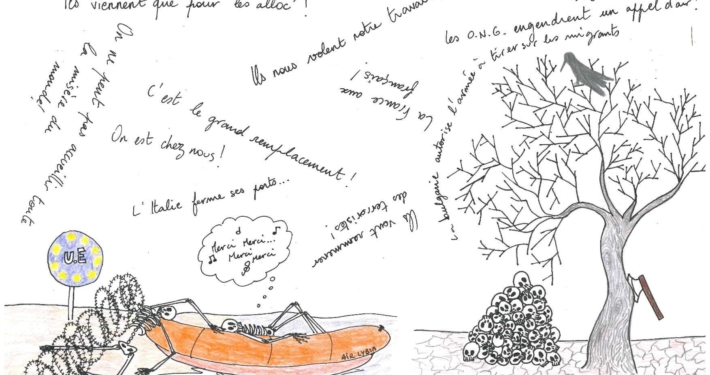 Ils viennent que pour les alloc' !
On ne peut pas accueillir toute
la misère du
monde !
C'est le grand remplacement !
On est chez nous !
L'Italie ferme ses ports...
Ils nous volent notre travail
La France aux
français !
Ils vont ramener
des terroristes !
Les O.N.G. engendrent un appel d'air !
La Bulgarie autorise l'armée à tirer sur les migrants
U.E
Merci Merci...
Merci Merci
AIR LYBIA